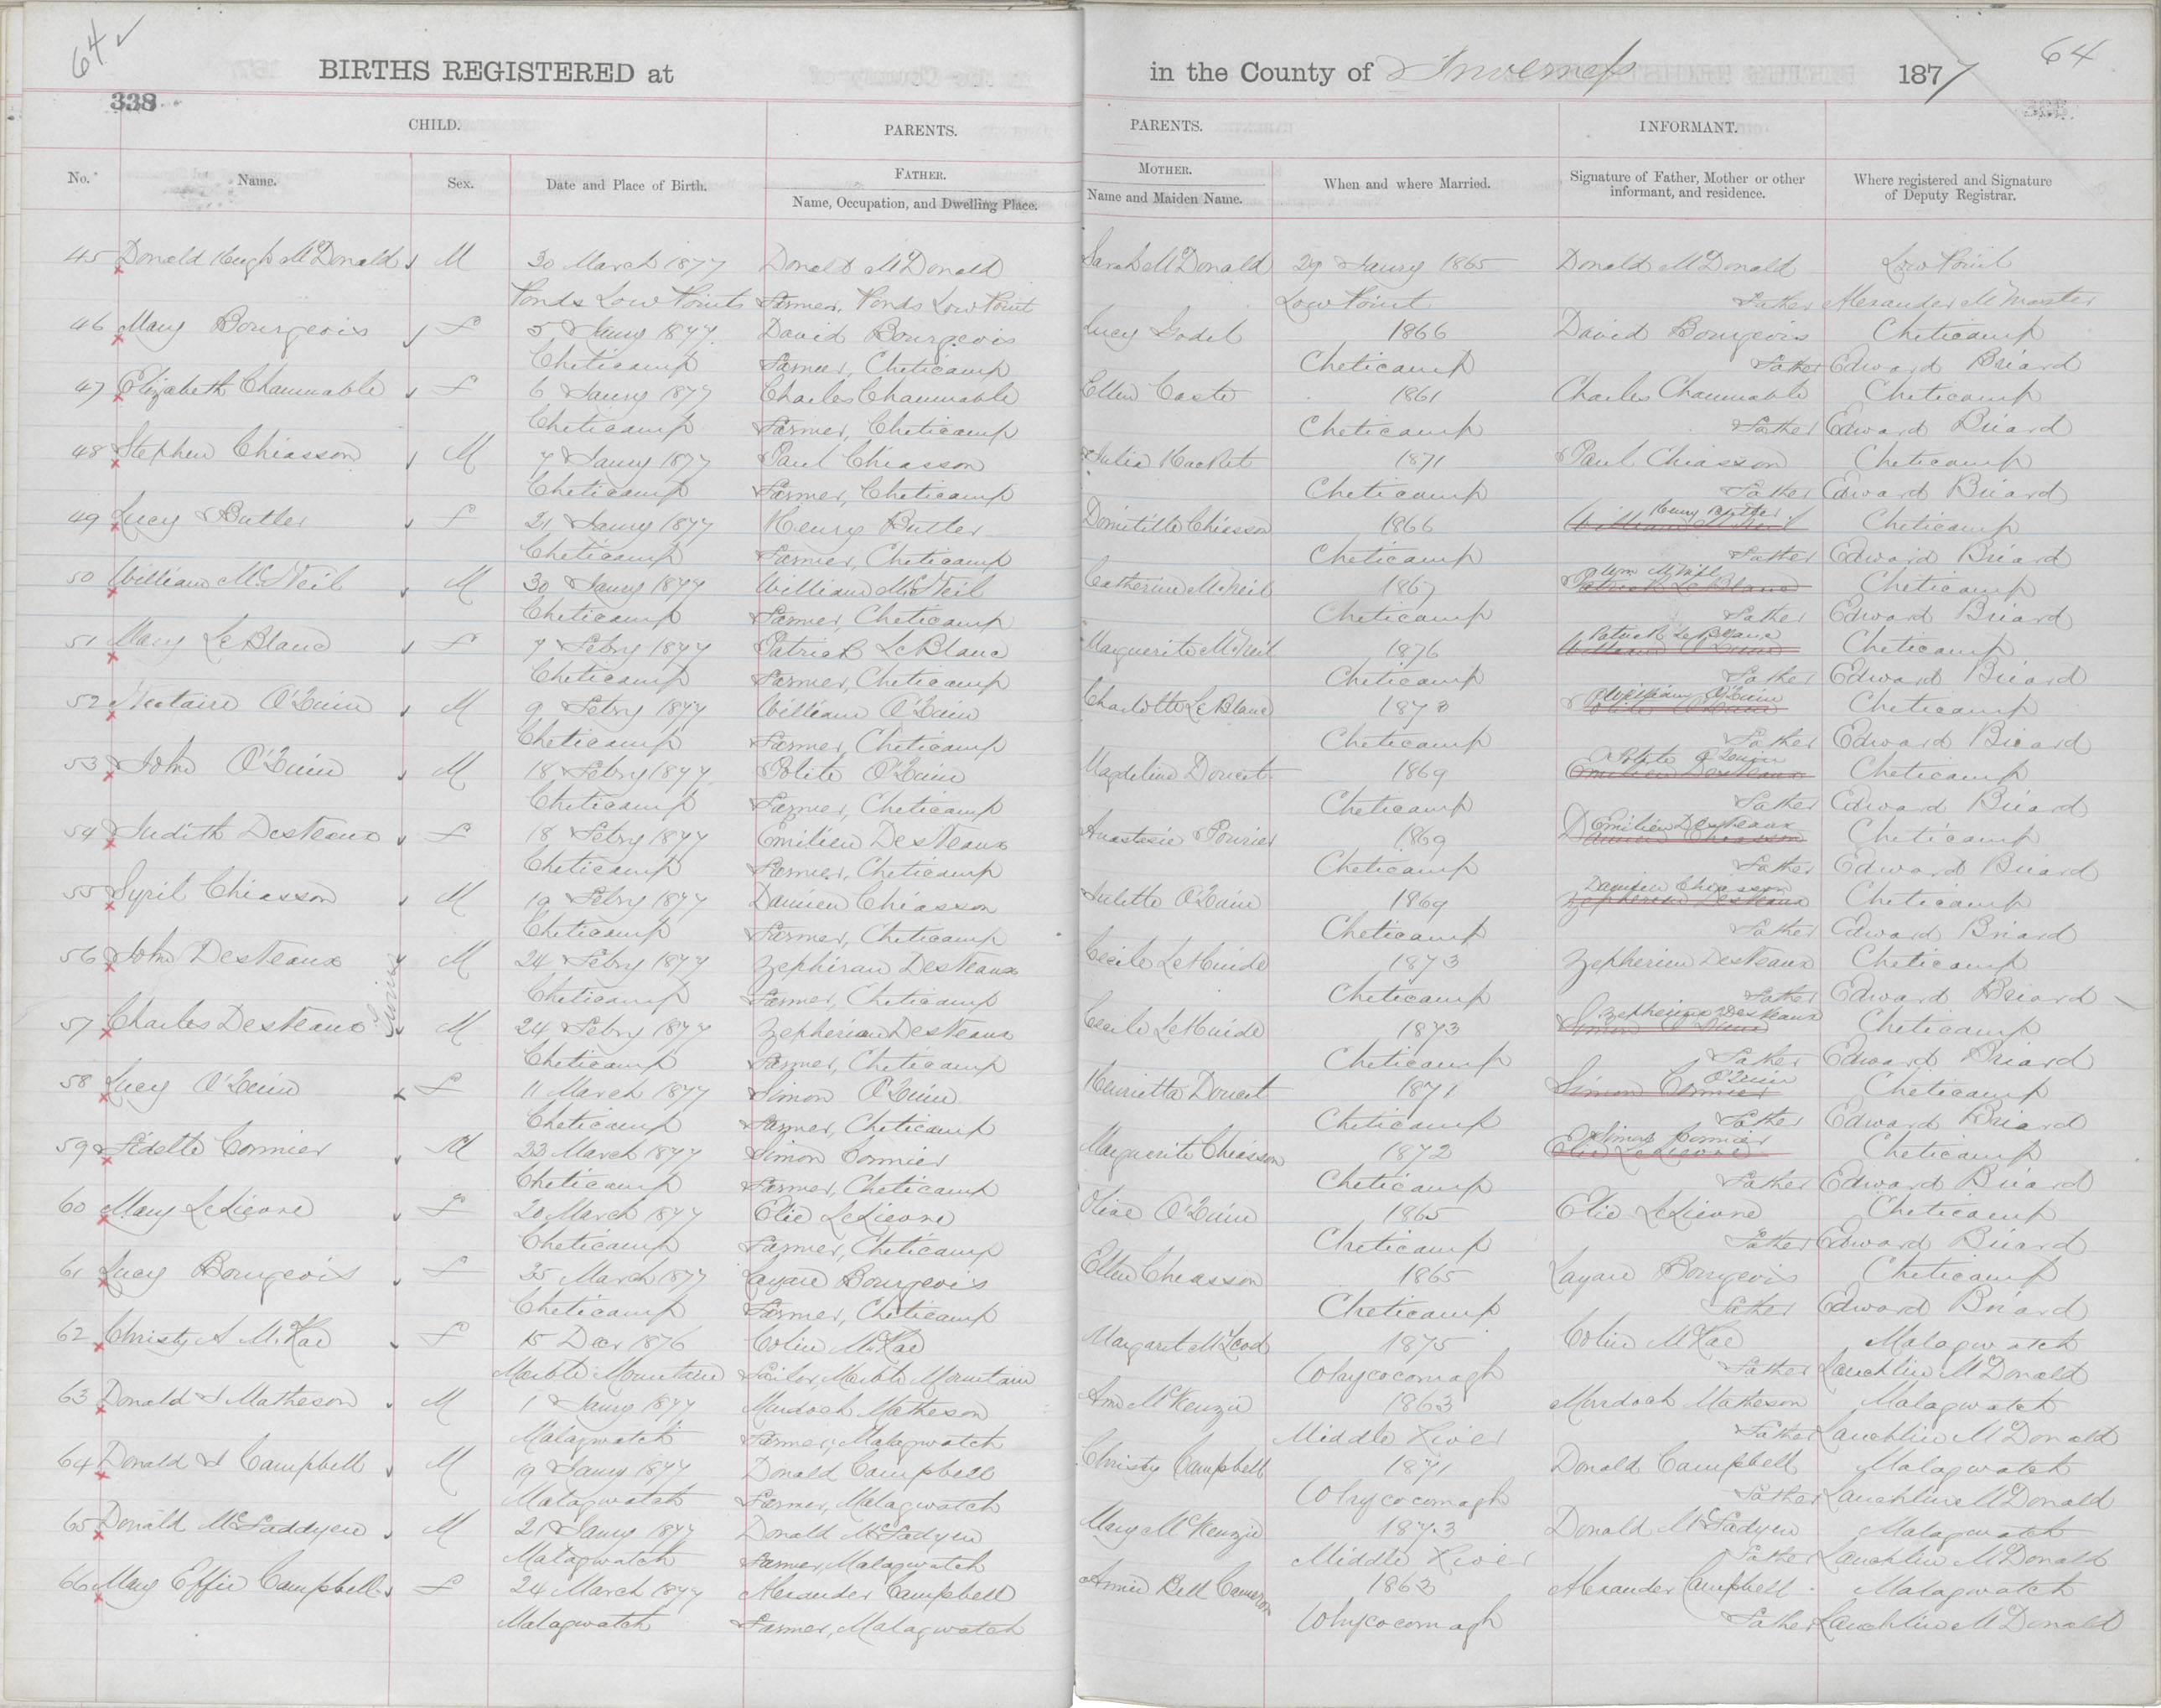 64 ✓
BIRTHS REGISTERED at in the County of Inverness 1877 64
338
CHILD. PARENTS. PARENTS. INFORMANT.
No. Name. Sex. Date and Place of Birth. FATHER. Name, Occupation, and Dwelling Place. MOTHER. Name and Maiden Name. When and where Married. Signature of Father, Mother or other informant, and residence. Where registered and Signature of Deputy Registrar.
45 Donald Hugh McDonald M 30 March 1877 Donald McDonald Sarah McDonald 29 Jany 1865 Donald McDonald Low Point
Ponds Low Point Farmer, Ponds Low Point Low Point Father Alexander McMaster
46 Mary Bourgeois F 5 Jany 1877 David Bourgeois Lucy Godet 1866 David Bourgeois Cheticamp
Cheticamp Farmer, Cheticamp Cheticamp Father Edward Briard
47 Elizabeth Chaumable F 6 Jany 1877 Charles Chaumable Ellen Coste 1861 Charles Chaumable Cheticamp
Cheticamp Farmer, Cheticamp Cheticamp Father Edward Briard
48 Stephen Chiasson M 7 Jany 1877 Paul Chiasson Julia Hacket 1871 Paul Chiasson Cheticamp
Cheticamp Farmer, Cheticamp Cheticamp Father Edward Briard
49 Lucy Butler F 21 Jany 1877 Henry Butler Domitille Chiasson 1866 William McNeil Henry Butler Cheticamp
Cheticamp Farmer, Cheticamp Cheticamp Father Edward Briard
50 William McNeil M 30 Jany 1877 William McNeil Catherine McNeil 1867 Patrick LeBlanc Wm McNeil Cheticamp
Cheticamp Farmer, Cheticamp Cheticamp Father Edward Briard
51 Mary LeBlanc F 7 Febry 1877 Patrick LeBlanc Marguerite McNeil 1876 William O'Quin Patrick LeBlanc Cheticamp
Cheticamp Farmer, Cheticamp Cheticamp Father Edward Briard
52 Nectaire O'Quin M 9 Febry 1877 William O'Quin Charlotte LeBlanc 1873 Polite O'Quin William O'Quin Cheticamp
Cheticamp Farmer, Cheticamp Cheticamp Father Edward Briard
53 John O'Quin M 18 Febry 1877 Polite O'Quin Magdeline Doucet 1869 Emilien Desveaux Polite O'Quin Cheticamp
Cheticamp Farmer, Cheticamp Cheticamp Father Edward Briard
54 Judith Desveaux F 18 Febry 1877 Emilien Desveaux Anastasie Poirier 1869 Damien Chiasson Emilien Desveaux Cheticamp
Cheticamp Farmer, Cheticamp Cheticamp Father Edward Briard
55 Syril Chiasson M 19 Febry 1877 Damien Chiasson Juletta O'Quin 1869 Zepherien Desveaux Damien Chiasson Cheticamp
Cheticamp Farmer, Cheticamp Cheticamp Father Edward Briard
56 John Desveaux M 24 Febry 1877 Zephirau Desveaux Cecile LeHuide 1873 Zepherien Desveaux Cheticamp
Twins
Cheticamp Farmer, Cheticamp Cheticamp Father Edward Briard
57 Charles Desveaux M 24 Febry 1877 Zepherien Desveaux Cecile LeHuide 1873 Simon O'Quin Zepherien Desveaux Cheticamp
Cheticamp Farmer, Cheticamp Cheticamp Father Edward Briard
58 Lucy O'Quin F 11 March 1877 Simon O'Quin Henrietta Doucet 1871 Simon Cormier O'Quin Cheticamp
Cheticamp Farmer, Cheticamp Cheticamp Father Edward Briard
59 Fidelle Cormier M 23 March 1877 Simon Cormier Marguerite Chiasson 1872 Elie LeLievre Simon Cormier Cheticamp
Cheticamp Farmer, Cheticamp Cheticamp Father Edward Briard
60 Mary LeLievre F 20 March 1877 Elie LeLievre Olive O'Quin 1865 Elie LeLievre Cheticamp
Cheticamp Farmer, Cheticamp Cheticamp Father Edward Briard
61 Lucy Bourgeois F 25 March 1877 Layare Bourgeois Ellen Chiasson 1865 Layare Bourgeois Cheticamp
Cheticamp Farmer, Cheticamp Cheticamp Father Edward Briard
62 Christy A McRae F 15 Decr 1876 Colin McRae Margaret McLeod 1875 Colin McRae Malagwatch
Marble Mountain Sailor, Marble Mountain Whycocomagh Father Lauchlin McDonald
63 Donald J Matheson M 1 Jany 1877 Murdoch Matheson Ann McKenzie 1863 Murdoch Matheson Malagwatch
Malagwatch Farmer, Malagwatch Middle River Father Lauchlin McDonald
64 Donald J Campbell M 19 Jany 1877 Donald Campbell Christy Campbell 1871 Donald Campbell Malagwatch
Malagwatch Farmer, Malagwatch Whycocomagh Father Lauchlin McDonald
65 Donald McFaddyen M 21 Jany 1877 Donald McFadyen Mary McKenzie 1873 Donald McFadyen Malagwatch
Malagwatch Farmer, Malagwatch Middle River Father Lauchlin McDonald
66 Mary Effie Campbell F 24 March 1877 Alexander Campbell Annie Bell Cameron 1863 Alexander Campbell Malagwatch
Malagwatch Farmer, Malagwatch Whycocomagh Father Lauchlin McDonald